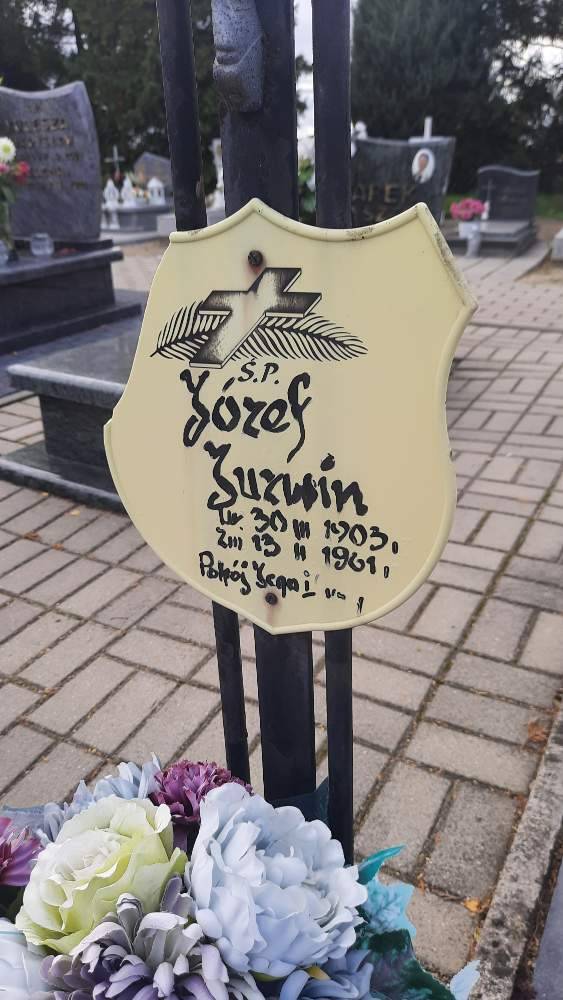 Ś.P.
Józef
Żurwin
Ur. 30 III 1903.
Zm 13 II 1961.
Pokój Jego
APEK